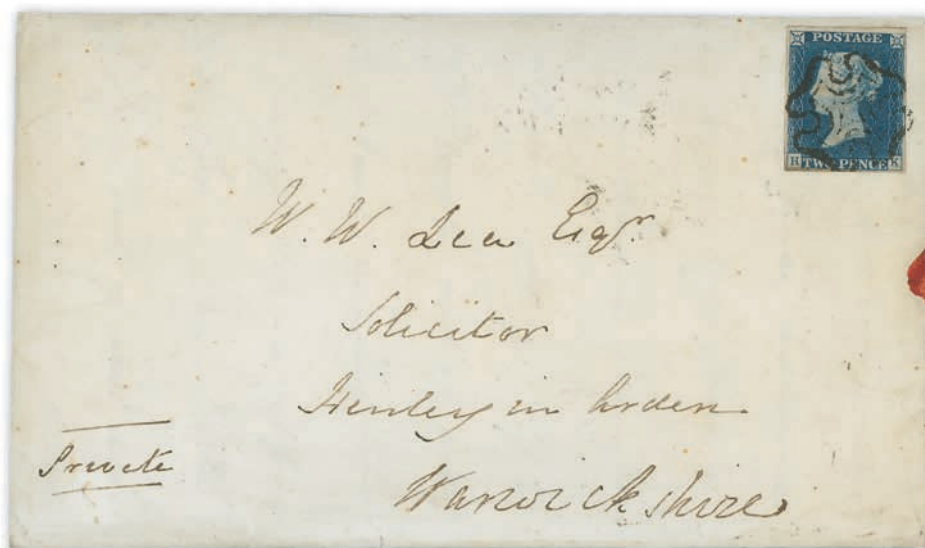 POSTAGE
TWO PENCE
W. W. Lea Esqr.
Solicitor
Henley in Arden
Warwickshire
Private